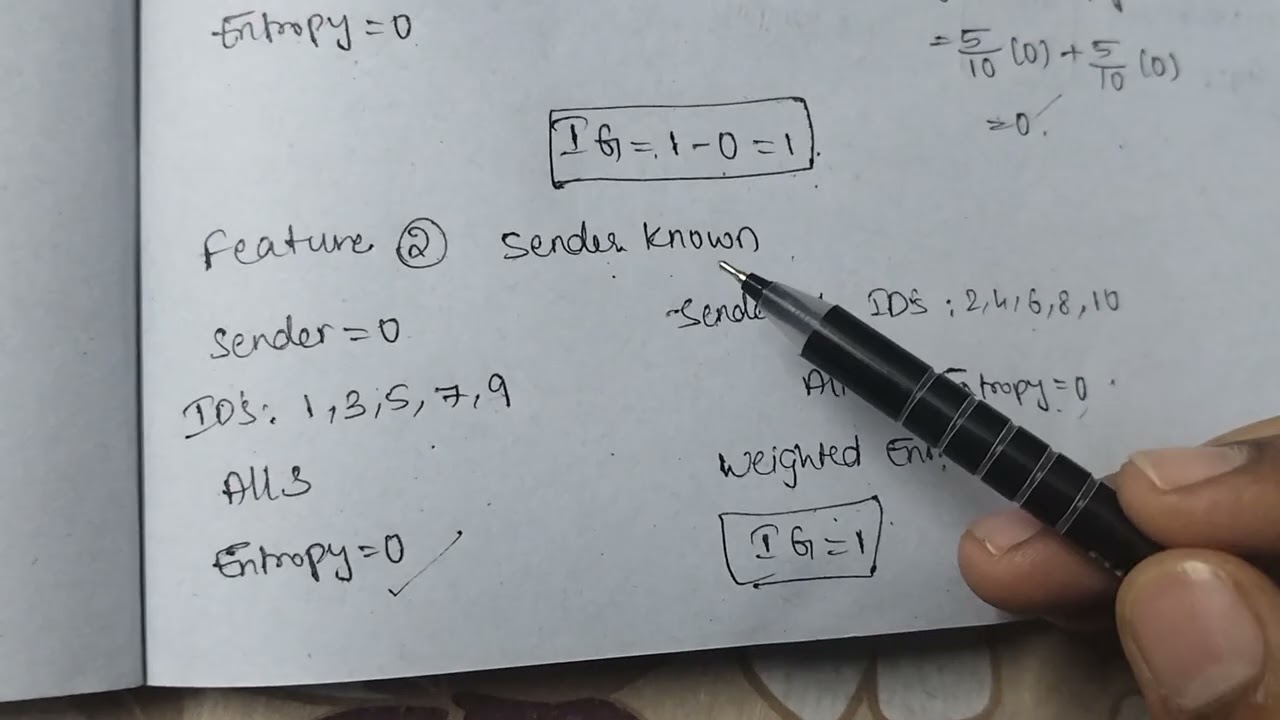 Entropy = 0
= 5/10 (0) + 5/10 (0)
= 0.
IG = 1 - 0 = 1
Feature ② Sender Known
Sender = 0
IDS: 1, 3, 5, 7, 9
All S
Entropy = 0
IDS: 2, 4, 6, 8, 10
Entropy = 0
Weighted
IG = 1